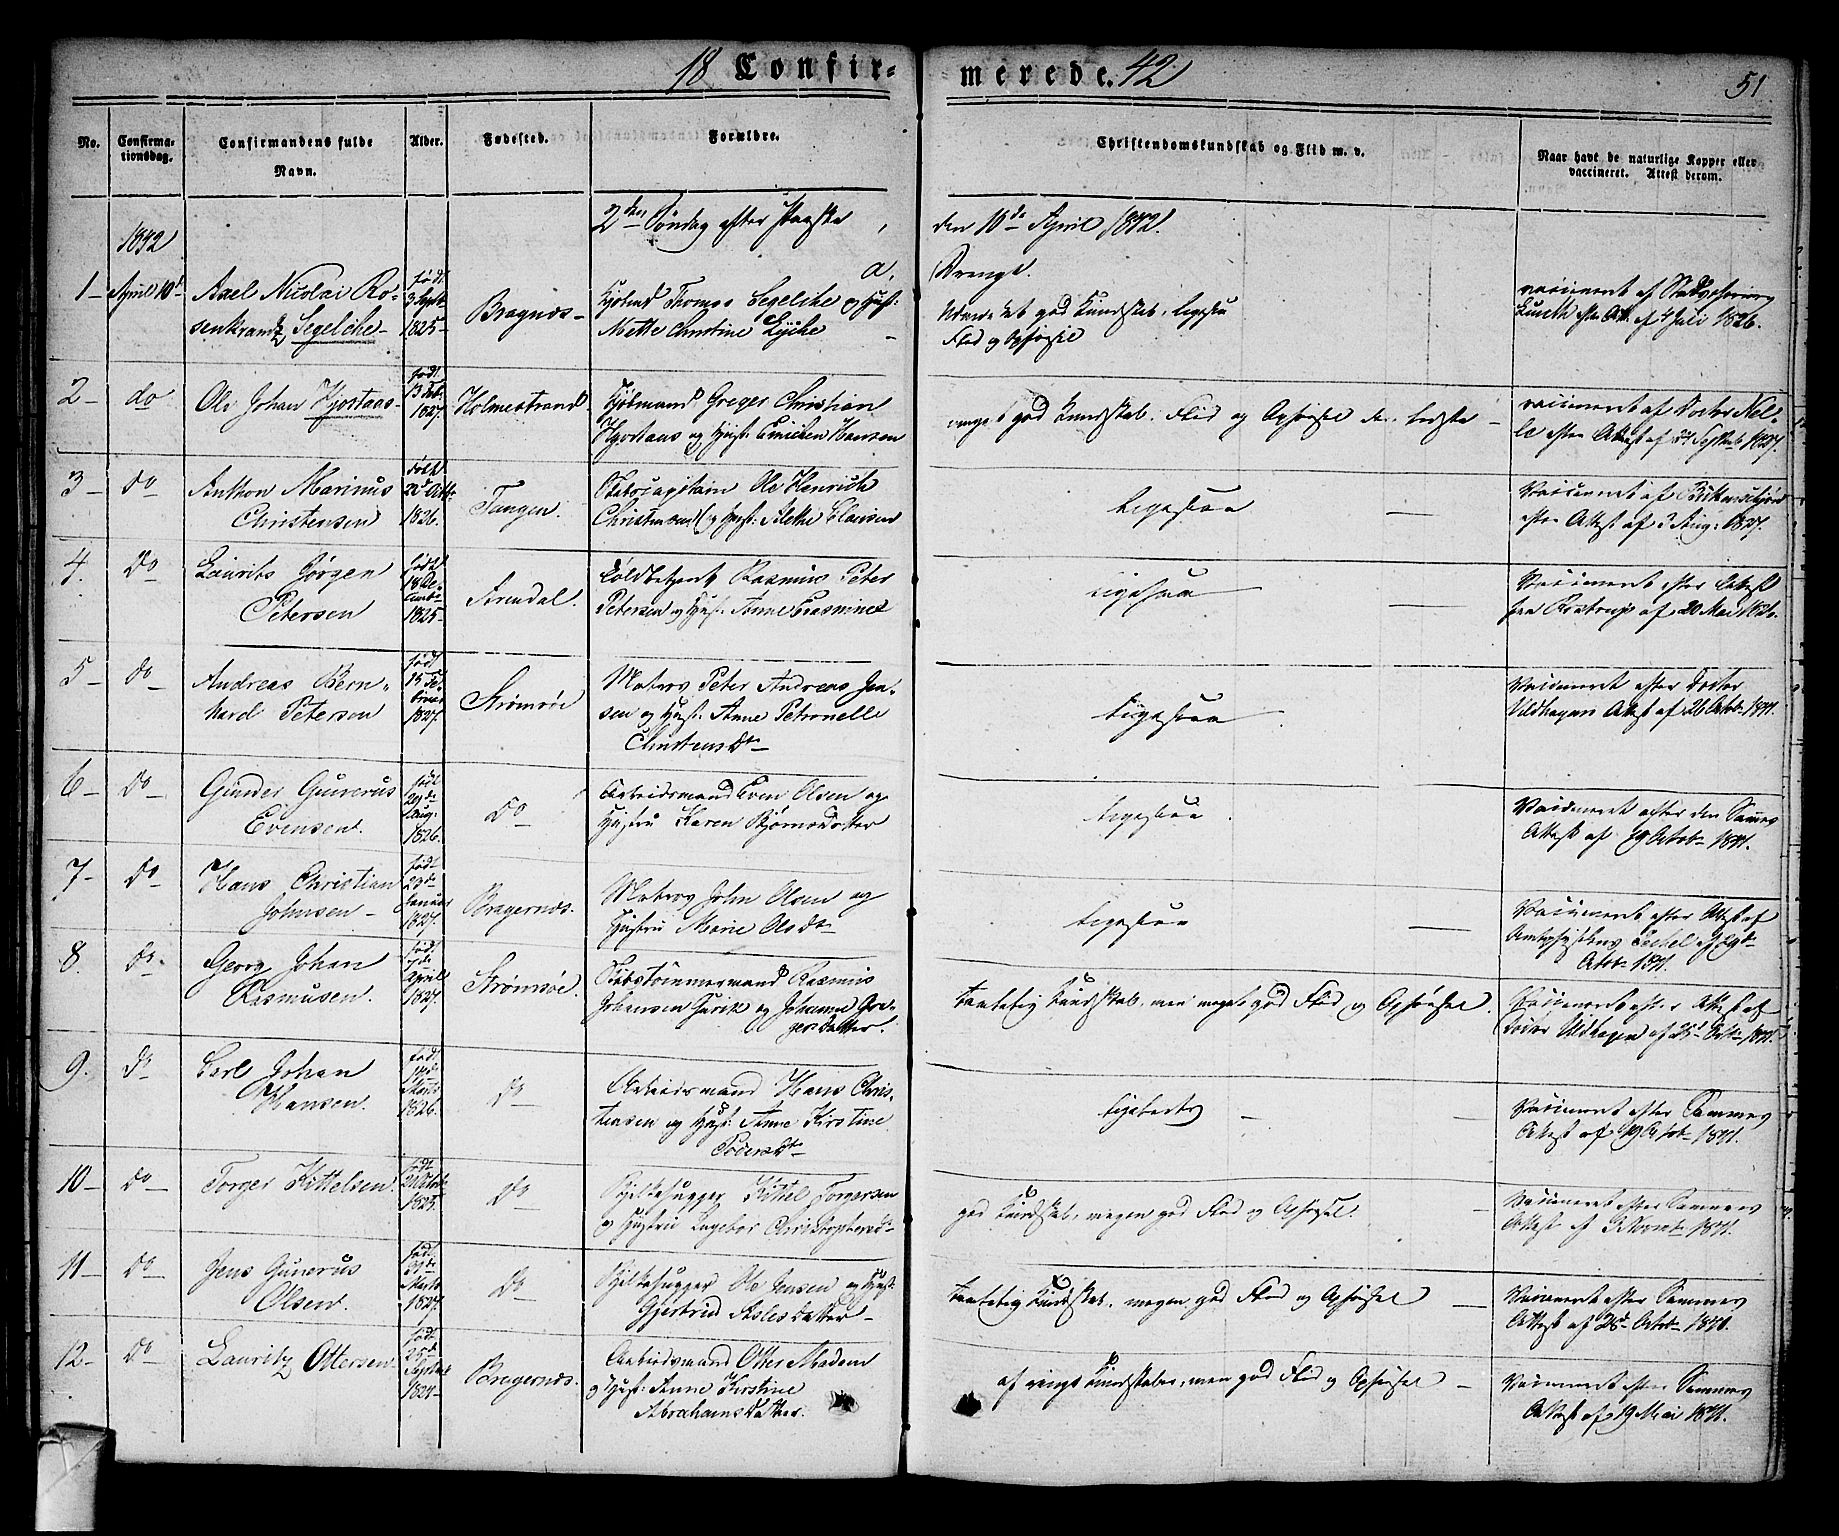 18 Confir-
merede. 42
51
No.
Confirma-
tionsdag.
Confirmandens fulde
Navn.
Alder.
Fødested.
Forældre.
Christendomskundskab og Flid m. v.
Naar havt de naturlige Kopper eller
vaccineret. Attest derom.
1842
2den Søndag efter Paaske,
den 10de April 1842.
a,
Drenge.
1 - April 10d
Axel Nicolai Ro-
senkrantz Segelche -
født
3 Septb
1825 -
Bragnæs -
Kjøbmd Thomas Segelche og Hust:
Mette Christine Lyche -
god Kundskab,
Flid og Opførsel
vaccineret af
af 4 Juli 1826.
2 - do
Ole Johan Hjortaas -
født
13 Feb.
1827.
Holmestrand
Kjøbmand Greger Christian
Hjortaas og Hust: Emichen Hansen
meget god Kundskab. Flid og Opførsel
vaccineret af Doctor Nel-
le efter Attest af Septbr 1827.
3 - do
Anthon Marinus
Christensen
født
1826.
Tangen.
Skibscapitain Ole Henrich
Christensen og Hust: Alethe Clausen
Ligesaa -
Vaccineret af
efter Attest af 3 Aug: 1827.
4. Do
Laurits Jørgen
Petersen
født
18 De-
cembr
1825 -
Arendal.
Toldbetjent Rasmus Peter
Petersen og Hust: Anne Erasmines
Ligesaa -
Vaccineret efter Attest
fra Pratrup af 20 Mai 1826.
5 - do -
Andreas Bern-
hard Petersen
født
15 Fe-
bruar
1827.
Strømsøe
Matros Peter Andreas Jen-
sen og Hust: Anne Petronelle
Christensdr -
Ligesaa
Vaccineret efter Doctor
Uldhagens Attest af 26 Octob. 1841.
6 - do -
Gunder Gunerus
Evensen.
født
29de
Aug:
1826.
do
Arbeidsmand Even Olsen og
Hustru Karen Bjørnsdatter
Ligesaa
Vaccineret efter den Sammes
Attest af 19 Octob - 1841.
7 - do -
Hans Christian
Johnsen -
født
29de
Januar
1827.
Bragernæs.
Matros John Olsen og
Hustru Marie Olsdr
Ligesaa -
Vaccineret efter Attest af
Amtsphysicus
Octob. 1841.
8. do -
Georg Johan
Rasmusen.
født
7de
April
1827.
Strømsøe.
Skibstømmermand Rasmus
Johansen og Johanne Gre-
gersdatter.
Taalelig Kundskab, men meget god Flid og Opførsel.
Vaccineret efter Attest af
Doctor Uldhagen af 25d Octbr 1841.
9. do
Carl Johan
Hansen.
født
14de
Marts
1826.
do -
Arbeidsmand Hans Chris-
tensen og Hust: Anne Kirstine
Pedersdr -
Ligeledes -
Vaccineret efter Sammes
Attest af 19 Octob - 1841.
10 - do -
Torger Kittelsen
født
Octob
1825.
do
Bjelkehugger Kittel Torgersen
og Hustru Ingebor Christophersdr
god Kundskab, megen god Flid og Opførsel. -
Vaccineret efter Sammes
Attest af 3 Novbr 1841.
11 - do -
Jens Gunerus
Olsen.
født
31de
Marts
1827.
do -
Bjelkehugger Ole Jensen og Hust:
Gjertrud Aslesdatter -
Taalelig Kundskab, megen god Flid og Opførsel -
Vaccineret efter Sammes
Attest af 25d Octob - 1841.
12 - do -
Lauritz Ottersen
født
25d
1824 -
Bragernæs.
Arbeidsmand Otter Madsen
og Hust: Anne Kirstine
Abrahamsdatter.
af ringe Kundskaber, men god Flid og Opførsel -
Vaccineret efter Sammes
Attest af 19 Mai 1841.